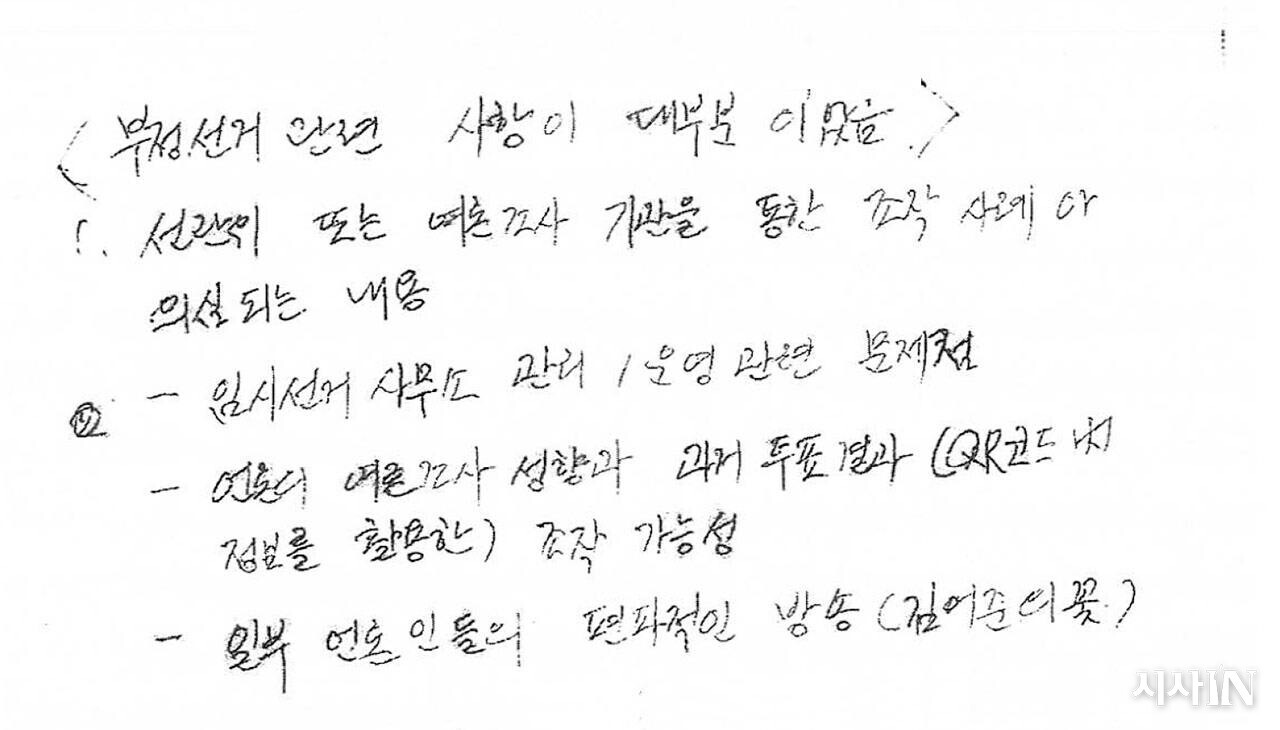 <부정선거 관련 사항이 대부분 이었음.>
1. 선관위 또는 여론조사 기관을 통한 조작 사례 나
의심되는 내용
- 임시선거 사무소 관리 / 운영 관련 문제점
②
- 언론의 여론조사 성향과 과거 투표결과 (QR코드 내
정보를 활용한) 조작 가능성
- 일부 언론인들의 편파적인 방송 (김어준의 꽃.)
시사IN